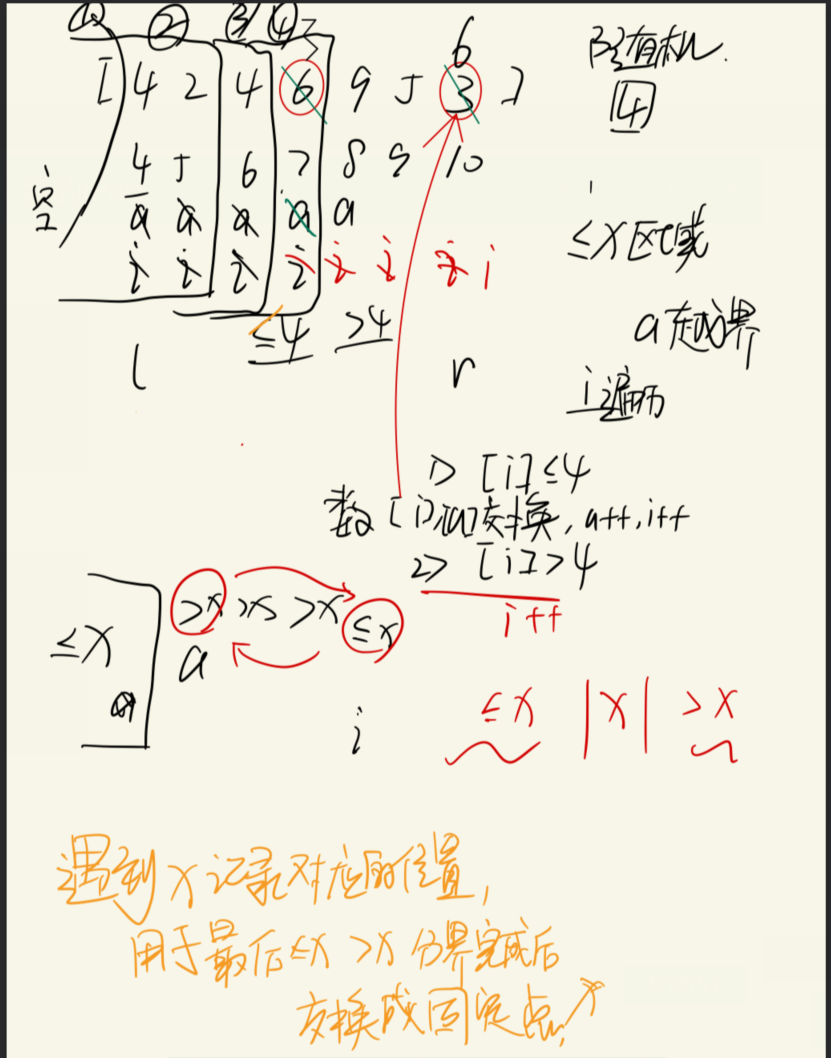 ① ② ③ ④ 3
6
[ 4 2 4 6 9 5 3 ]
随机
4
4 5 6 7 8 9 10
空
a a a a a
i i i i i i i i
≤4 >4
l r
≤X区域
a在越界
i遍历
1> [i]≤4
数[i]和[a]交换, a++, i++
2> [i]>4
i++
≤X >X >X >X ≤X
a a
i
≤X |X| >X
遇到X记录对应的位置,
用于最后≤X >X 分界完成后
交换成固定点